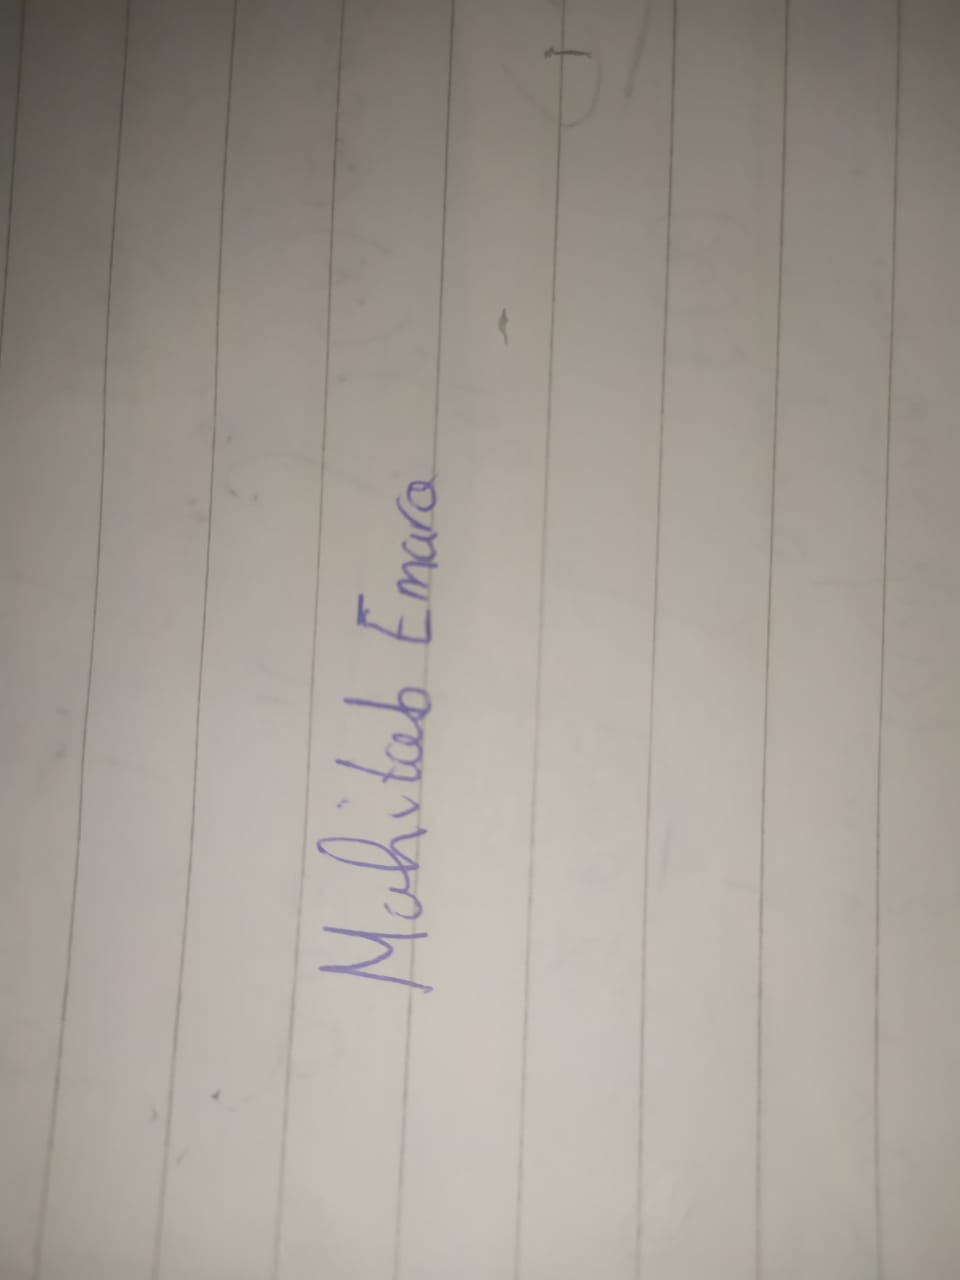 Mahitab Emara